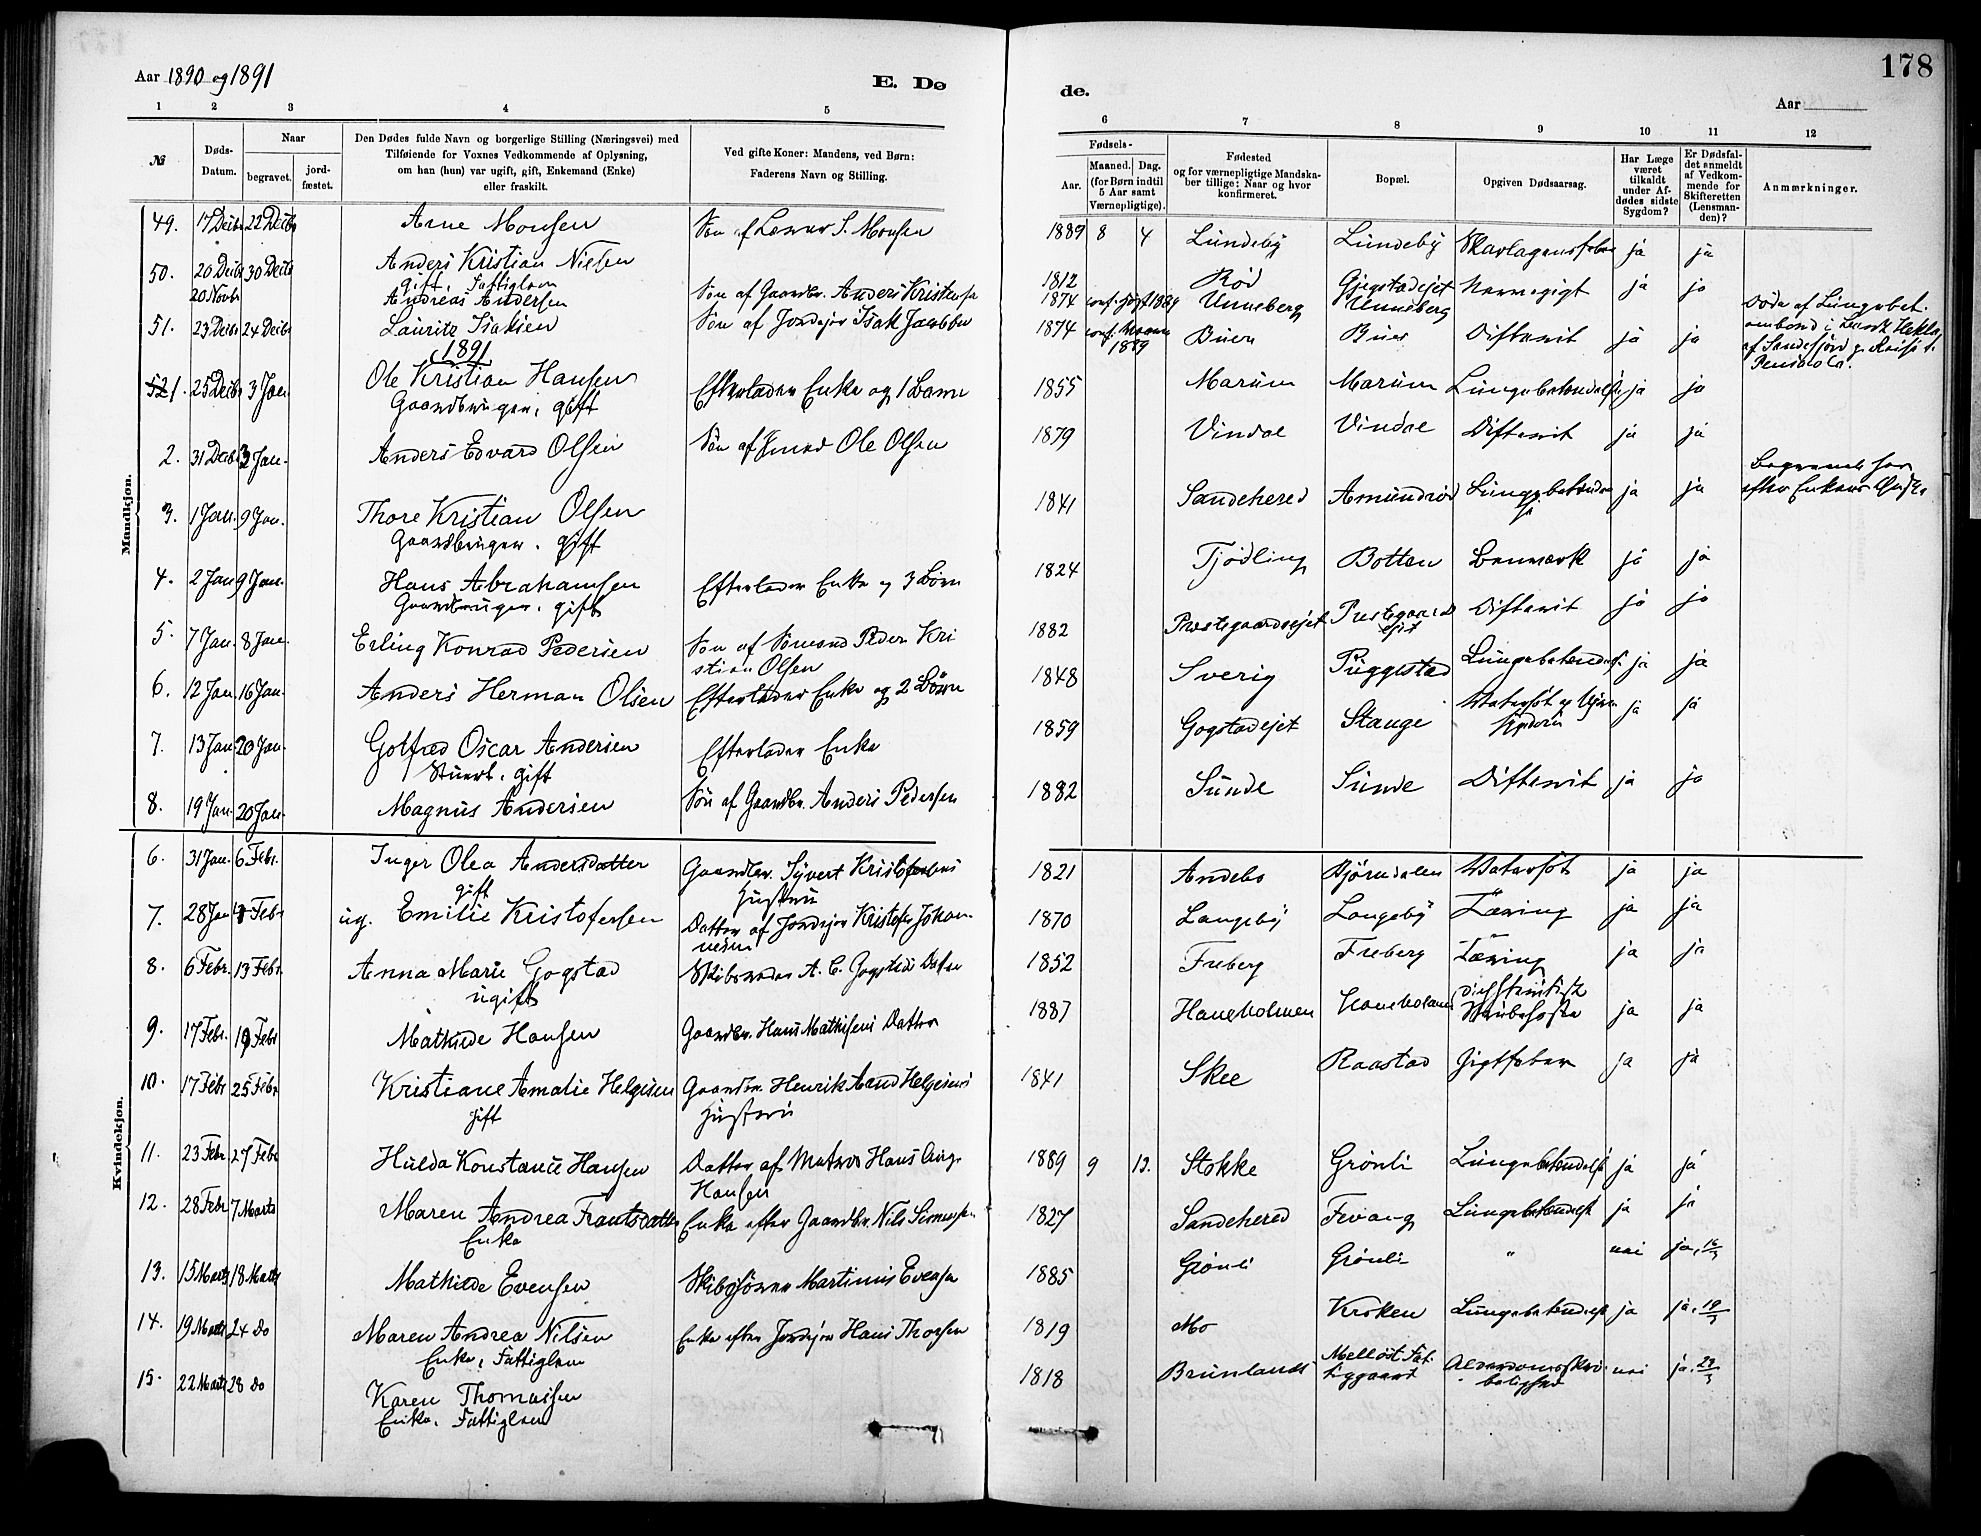 178
Aar 1890 og 1891
E. Dø
de.
Aar
1 2 3 4 5
6 7 8 9 10 11 12
№
Døds-
Datum.
Naar
begravet.
jord-
fæstet.
Den Dødes fulde Navn og borgerlige Stilling (Næringsvei) med
Tilføiende for Voxnes Vedkommende af Oplysning,
om han (hun) var ugift, gift, Enkemand (Enke)
eller fraskilt.
Ved gifte Koner: Mandens, ved Børn:
Faderens Navn og Stilling.
Fødsels-
Aar.
Maaned.
Dag.
(for Børn indtil
5 Aar samt
Værnepligtige).
Fødested
og for værnepligtige Mandska-
ber tillige: Naar og hvor
konfirmeret.
Bopæl.
Opgiven Dødsaarsag.
Har Læge
været
tilkaldt
under Af-
dødes sidste
Sygdom?
Er Dødsfal-
det anmeldt
af Vedkom-
mende for
Skifteretten
(Lensman-
den)?
Anmærkninger.
Mandkjøn.
49. 17 Decbr 22 Decbr Arne Monsen Søn af S. Monsen 1889 8 4 Lundeby Lundeby ja ja
50. 20 Decbr 30 Decbr Anders Kristian Nielsen 1812 Rød Gjegstadejet ja ja
gift, Fattiglem
20 Novbr Andreas Andersen Søn af Gaardbr. Anders Kristensen 1874 Unneberg Unneberg
51. 23 Decbr 24 Decbr Lauritz Isaksen Søn af Jordejer Isak Jacobsen 1874 Buer Buer Difterit ja ja
1889
Døde af Lungebet.
ombord i Hekla
af Sandefjord p. Reise t.
Pensacola.
1891
1. 25 Decbr 3 Jan. Ole Kristian Hansen Efterlader Enke og 1 Barn 1855 Marum Marum Lungebetændelse ja ja
Gaardbruger, gift
2. 31 Decbr 2 Jan. Anders Edvard Olsen Søn af Smed Ole Olsen 1879 Vindal Vindal Difterit ja ja
3. 1 Jan. 9 Jan. Thore Kristian Olsen 1841 Sandehered Amundrød Lungebetændelse ja ja
Gaardbruger. gift
efter Enkens
4. 2 Jan 9 Jan. Hans Abrahamsen Efterlader Enke og 3 Børn 1824 Tjødling Botten Benmærk ja ja
Gaardbruger. gift
5. 7 Jan. 8 Jan. Erling Konrad Pedersen Søn af Sømand Peder Kri 1882 Præstegaardsejet Prestegaard Difterit ja ja
stian Olsen
ejet
6. 12 Jan. 16 Jan. Anders Herman Olsen Efterlader Enke og 2 Børn 1848 Sverig Puggestad Lungebetændelse ja ja
7. 13 Jan 20 Jan. Golfred Oscar Andersen Efterlader Enke 1859 Gogstadejet Stange Vatersot og ja ja
Stuert. gift
8. 19 Jan. 20 Jan. Magnus Andersen Søn af Gaardbr. Anders Pedersen 1882 Sunde Sunde Difterit ja ja
Kvindekjøn.
6. 31 Jan. 6 Febr. Inger Olea Andersdatter Gaardbr. Syvert Kristofersens 1821 Andebo Bjørndalen Vatersot ja ja
gift Hustru
7. 28 Jan Febr ug. Emilie Kristofersen Datter af Jordejer Kristofer Johan 1870 Langeby Langeby Tæring ja ja
nesen
8. 6 Febr. 13 Febr. Anna Marie Gogstad Skibsreder A. C. Gogstads Datter 1852 Freberg Freberg Tæring ja ja
ugift
9. 17 Febr. 19 Febr Mathilde Hansen Gaardbr. Hans Mathisens Datter 1887 Haneholmen Haneholmen Difteritisk ja ja
Strubehoste
10. 17 Febr 25 Febr Kristiane Amalie Helgesen Gaardbr. Henrik Aand Helgesens 1841 Skee Raastad Gigtfeber ja ja
gift Hustru
11. 23 Febr 27 Febr Hulda Konstance Hansen Datter af Matros Hans Aug. 1889 9 12. Stokke Grønli Lungebetændelse ja ja
Hansen
12. 28 Febr 7 Marts Maren Andrea Frantsdatter Enke efter Gaardbr. Nils Simonsen 1827 Sandehered Fevang Lungebetændelse ja ja
Enke
13. 15 Marts 18 Marts Mathilde Evensen Skibstømrer Martinus Evensen 1885 Grønli Grønli " nei ja, 16/3
14. 19 Marts 24 Do Maren Andrea Nilsen Enke efter Jordejer Hans Thorsen 1819 Mo Kroken Lungebetændelse ja ja, 19/3
Enke, Fattiglem
15. 22 Marts 28 Do Karen Thomassen 1818 Brunlanes Melløst Fat- Alderdomssvag nei ja, 23/3
Enke, Fattiglem
tiggaard